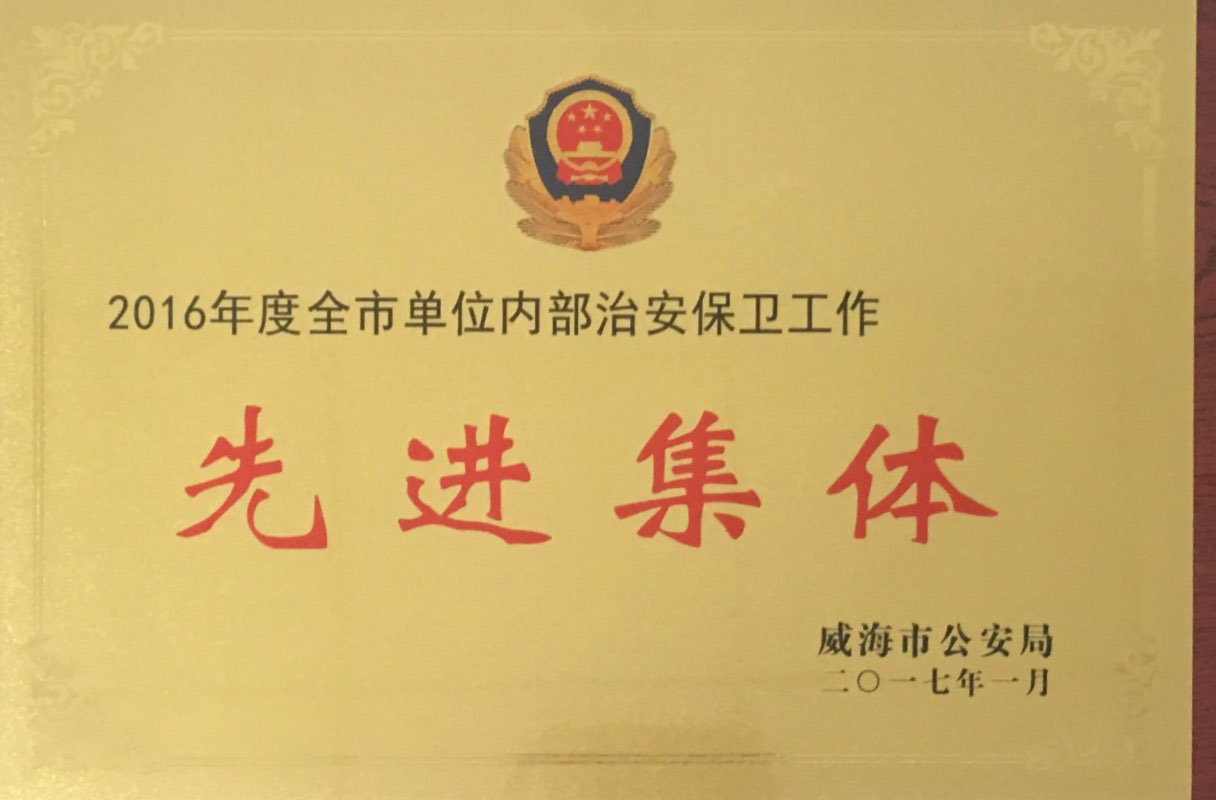 2016年度全市单位内部治安保卫工作
先进集体
威海市公安局
二〇一七年一月